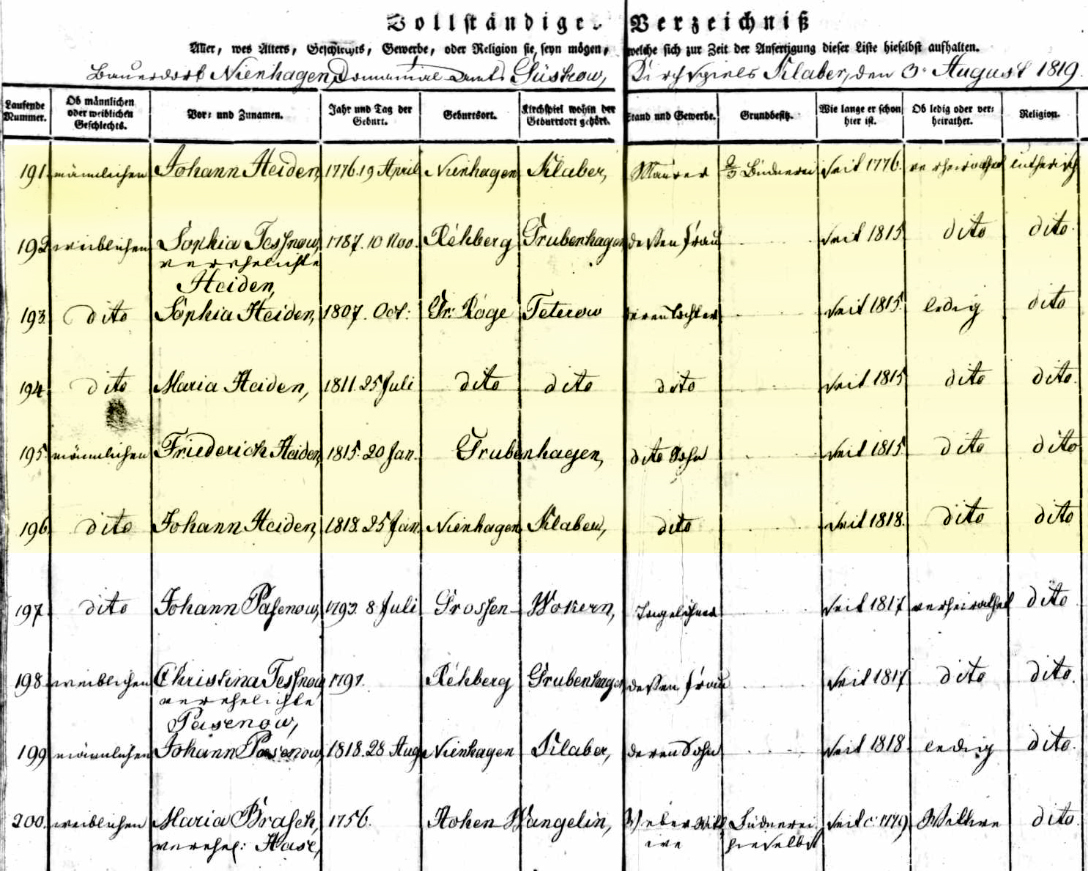 Vollständiges Verzeichniß
Aller, wes Alters, Geschlechts, Gewerbe, oder Religion sie seyn mögen, welche sich zur Zeit der Anfertigung dieser Liste hieselbst aufhalten.
Bauerdorf Nienhagen, Domanial Amts Güstrow, Kirchspiels Klaber, den 3. August 1819.
Laufende Nummer. Ob männlichen oder weiblichen Geschlechts. Vor- und Zunamen. Jahr und Tag der Geburt. Geburtsort. Kirchspiel wohin der Geburtsort gehört. Stand und Gewerbe. Grundbesitz. Wie lange er schon hier ist. Ob ledig oder verheirathet. Religion.
191 männlichen Johann Heiden, 1776. 19 April Nienhagen Klaber, Maurer 2/3 Büdnerei seit 1776. verheirathet lutherisch
192 weiblichen Sophia Teßnow, 1787. 10 Nov. Rehberg Grubenhagen deßen Frau seit 1815 dito dito
verehelichte
Heiden,
193. dito Sophia Heiden, 1807. Oct: Gr: Roge Teterow deren Tochter seit 1815 ledig dito
194. dito Maria Heiden, 1811. 25 Juli dito dito dito seit 1815 dito dito
195. männlichen Friederich Heiden, 1815. 20 Jan. Grubenhagen, dito Sohn seit 1815 dito dito
196. dito Johann Heiden, 1818. 25 Jan. Nienhagen Klaber, dito seit 1818. dito dito
197. dito Johann Paßenow, 1792. 8 Juli Grossen Wokern, Tagelöhner seit 1817 verheirathet dito
198. weiblichen Christina Teßnow 1791. Rehberg Grubenhagen deßen Frau seit 1817 dito dito
verehelichte
Pasenow,
199. männlichen Johann Pasenow, 1818. 28 Aug Nienhagen Klaber, deren Sohn seit 1818. ledig dito
200. weiblichen Maria Brasch, 1756. Hohen Wangelin, Weber Büdnerei seit c 1779 Wittwe dito
verehel: Hase, hieselbst